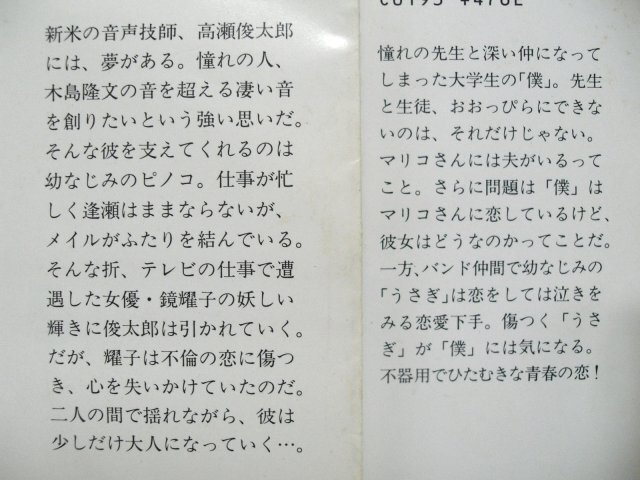 新米の音声技師、高瀬俊太郎
には、夢がある。憧れの人、
木島隆文の音を超える凄い音
を創りたいという強い思いだ。
そんな彼を支えてくれるのは
幼なじみのピノコ。仕事が忙
しく逢瀬はままならないが、
メイルがふたりを結んでいる。
そんな折、テレビの仕事で遭
遇した女優・鏡耀子の妖しい
輝きに俊太郎は引かれていく。
だが、耀子は不倫の恋に傷つ
き、心を失いかけていたのだ。
二人の間で揺れながら、彼は
少しだけ大人になっていく…。
憧れの先生と深い仲になって
しまった大学生の「僕」。先生
と生徒、おおっぴらにできな
いのは、それだけじゃない。
マリコさんには夫がいるって
こと。さらに問題は「僕」は
マリコさんに恋しているけど、
彼女はどうなのかってことだ。
一方、バンド仲間で幼なじみの
「うさぎ」は恋をしては泣きを
みる恋愛下手。傷つく「うさ
ぎ」が「僕」には気になる。
不器用でひたむきな青春の恋！